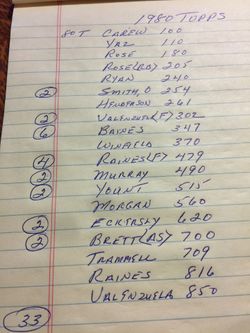 1980 TOPPS
80T CAREW 100
YAZ 110
ROSE 180
ROSE (RB) 205
RYAN 240
② SMITH, O 254
HENDERSON 261
② VALENZUELA (F) 302
⑥ BAINES 347
WINFIELD 370
④ RAINES (F) 479
② MURRAY 490
② YOUNT 515
MORGAN 560
② ECKERSLY 620
② BRETT (AS) 700
TRAMMELL 709
RAINES 816
VALENZUELA 850
33